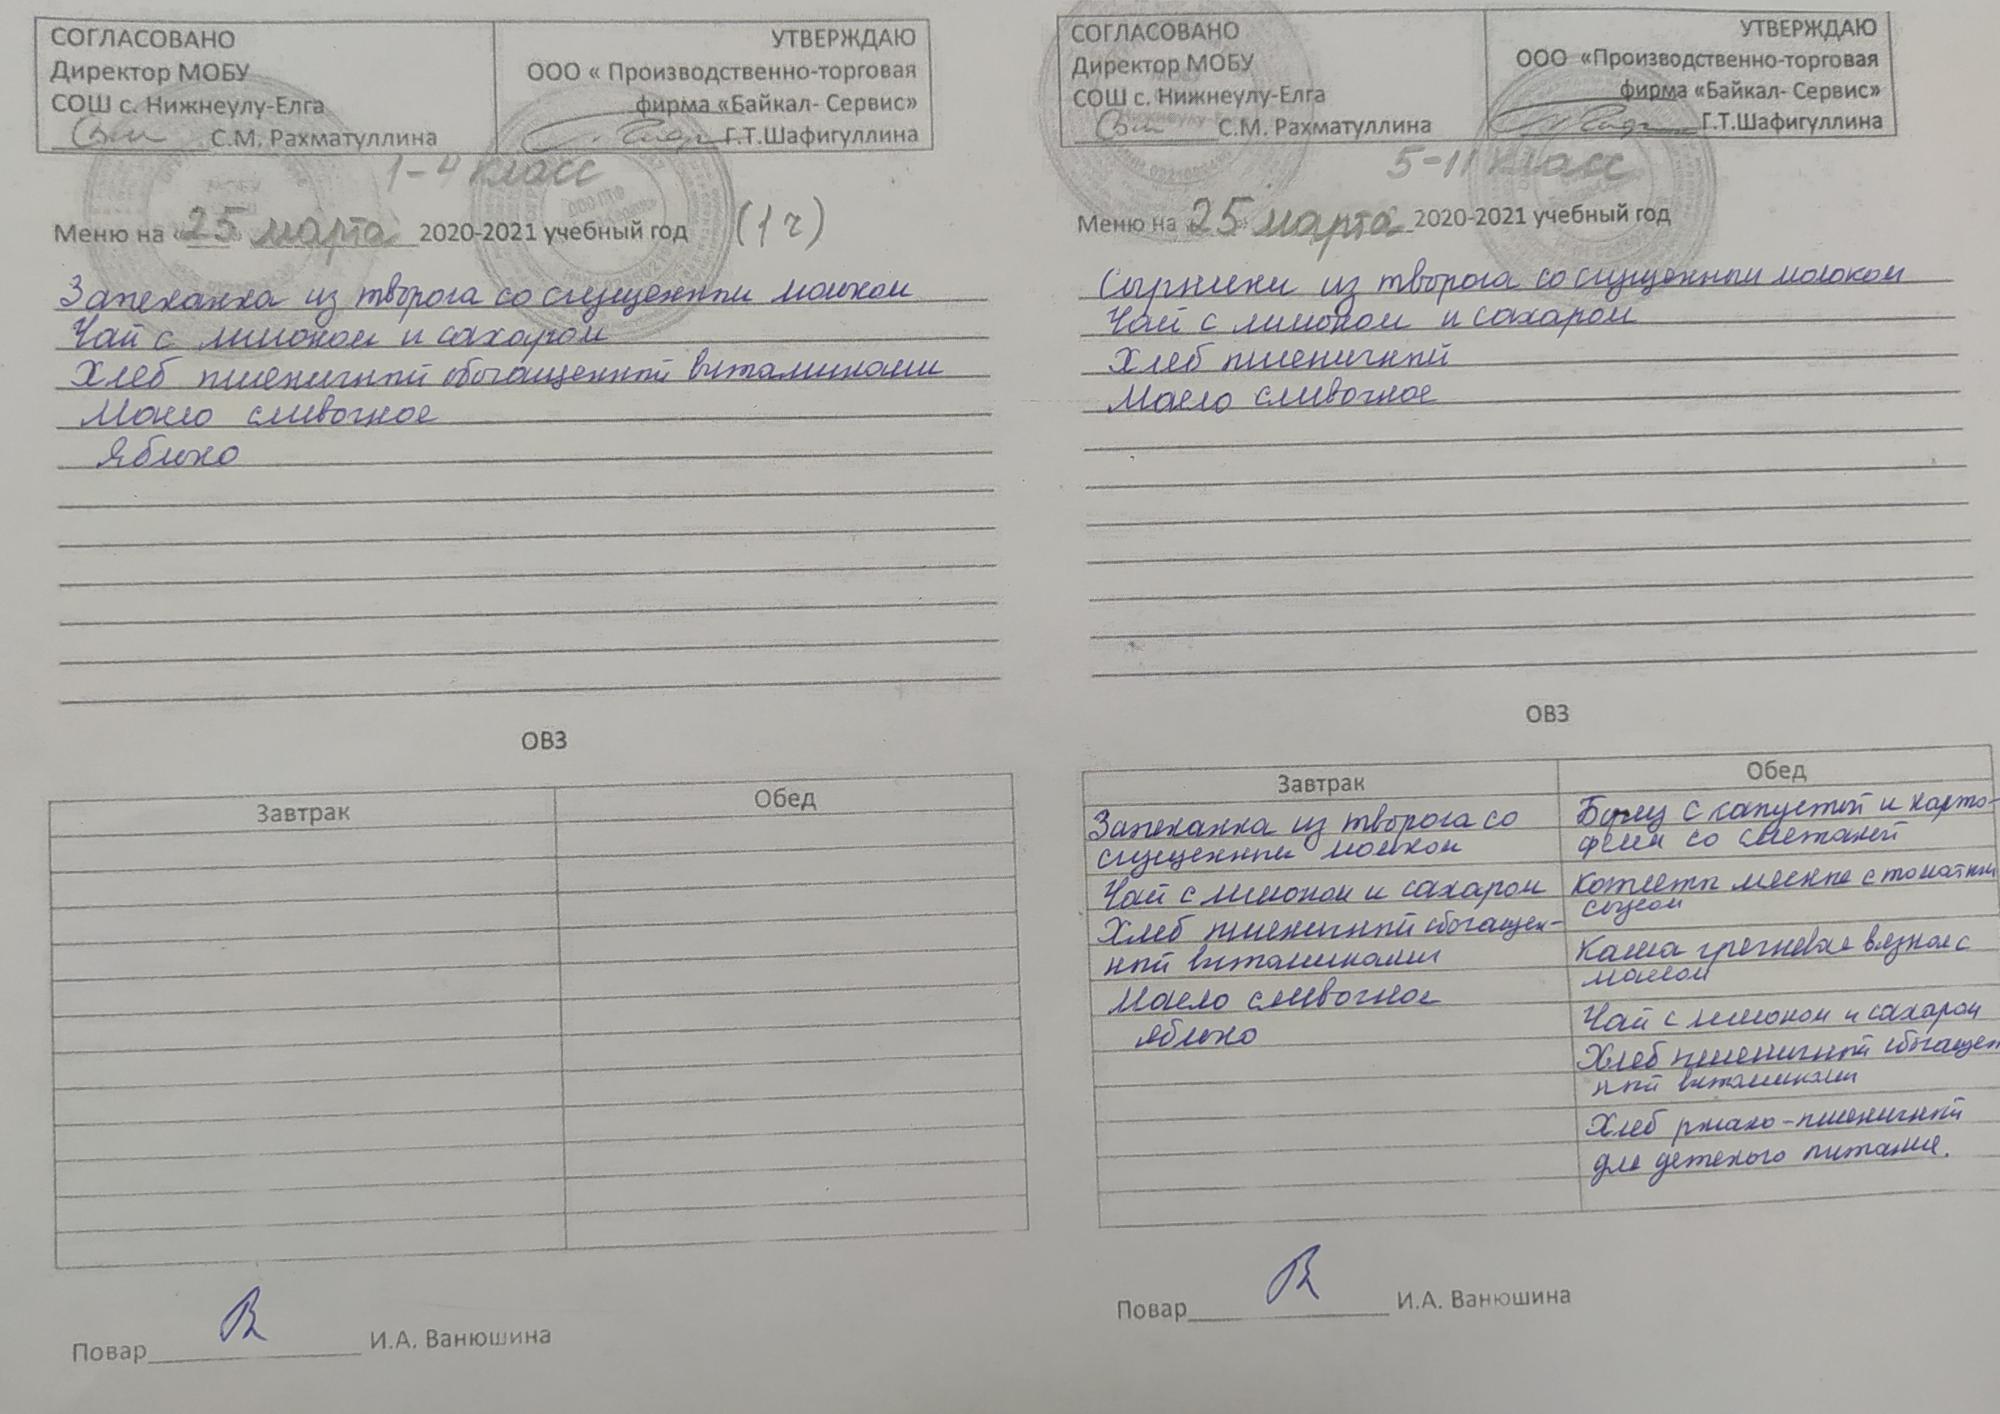 СОГЛАСОВАНО
Директор МОБУ
СОШ с. Нижнеулу-Елга
С.М. Рахматуллина
УТВЕРЖДАЮ
ООО « Производственно-торговая
фирма «Байкал- Сервис»
Г.Т.Шафигуллина
1-4 класс
Меню на «25» марта 2020-2021 учебный год (1 ч)
Запеканка из творога со сгущенным молоком
Чай с лимоном и сахаром
Хлеб пшеничный обогащенный витаминами
Масло сливочное
Яблоко
ОВЗ
Завтрак Обед
Повар И.А. Ванюшина
СОГЛАСОВАНО
Директор МОБУ
СОШ с. Нижнеулу-Елга
С.М. Рахматуллина
УТВЕРЖДАЮ
ООО «Производственно-торговая
фирма «Байкал- Сервис»
Г.Т.Шафигуллина
5-11 класс
Меню на «25» марта 2020-2021 учебный год
Сырники из творога со сгущенным молоком
Чай с лимоном и сахаром
Хлеб пшеничный
Масло сливочное
ОВЗ
Завтрак
Запеканка из творога со
сгущенным молоком
Чай с лимоном и сахаром
Хлеб пшеничный обогащен-
ный витаминами
Масло сливочное
яблоко
Обед
Борщ с капустой и карто-
фелем со сметаной
Котлеты мясные с томатным
соусом
Каша гречневая вязкая с
маслом
Чай с лимоном и сахаром
Хлеб пшеничный обогащен
ный витаминами
Хлеб ржано-пшеничный
для детского питания.
Повар И.А. Ванюшина